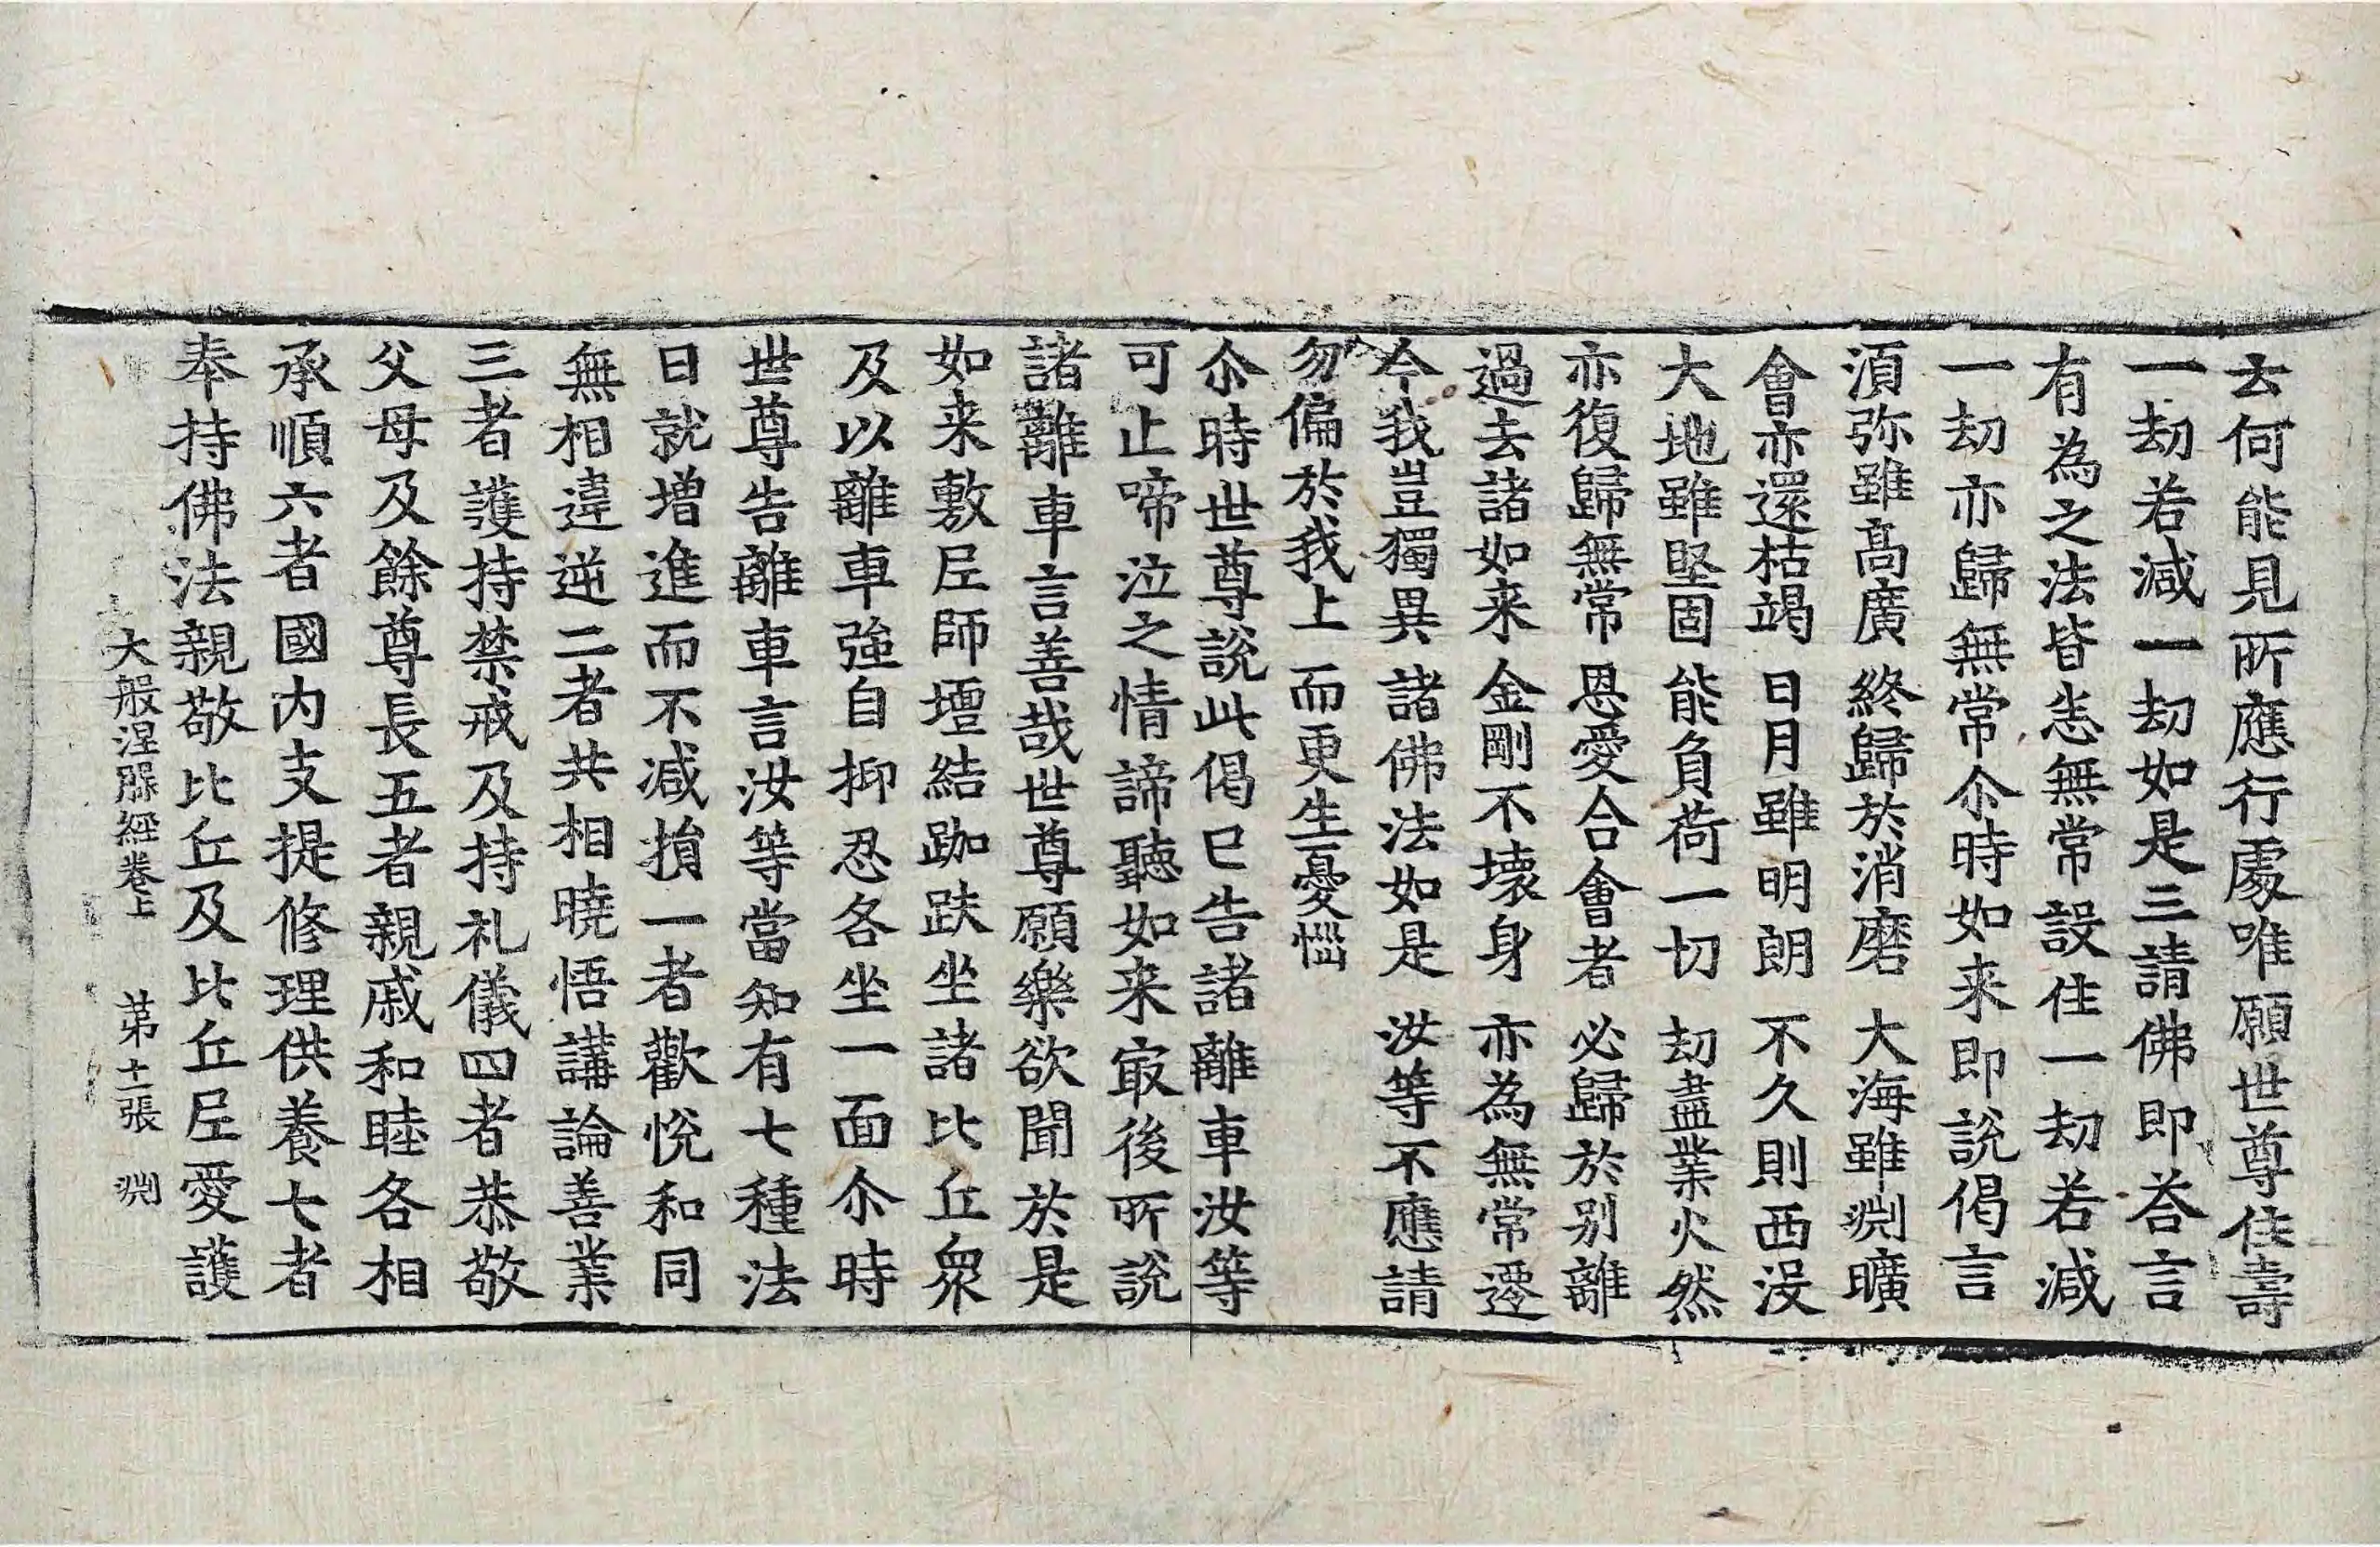 去何能見所應行處唯願世尊住壽
一劫若減一劫如是三請佛即荅言
有為之法皆悉無常設住一劫若減
一劫亦歸無常尒時如来即說偈言
湏弥雖髙廣 終歸於消磨 大海雖渕曠
會亦還枯竭 日月雖明朗 不久則西沒
大地雖堅固 能負荷一切 劫盡業火然
亦復歸無常 恩愛合會者 必歸於别離
過去諸如来 金剛不壊身 亦為無常遷
今我豈獨異 諸佛法如是 汝等不應請
勿偏於我上 而更生憂惱
尒時世尊說此偈已告諸離車汝等
可止啼泣之情諦聽如来㝡後所說
諸離車言善哉世尊願樂欲聞於是
如来敷尼師壇結跏趺坐諸比丘衆
及以離車強自抑忍各坐一面尒時
世尊告離車言汝等當知有七種法
日就增進而不减損一者歡悅和同
無相違逆二者共相曉悟講論善業
三者護持禁戒及持礼儀四者恭敬
父母及餘尊長五者親戚和睦各相
承順六者國内支提修理供養七者
奉持佛法親敬比丘及比丘尼愛護
大般涅槃經卷上 苐十一張 渕